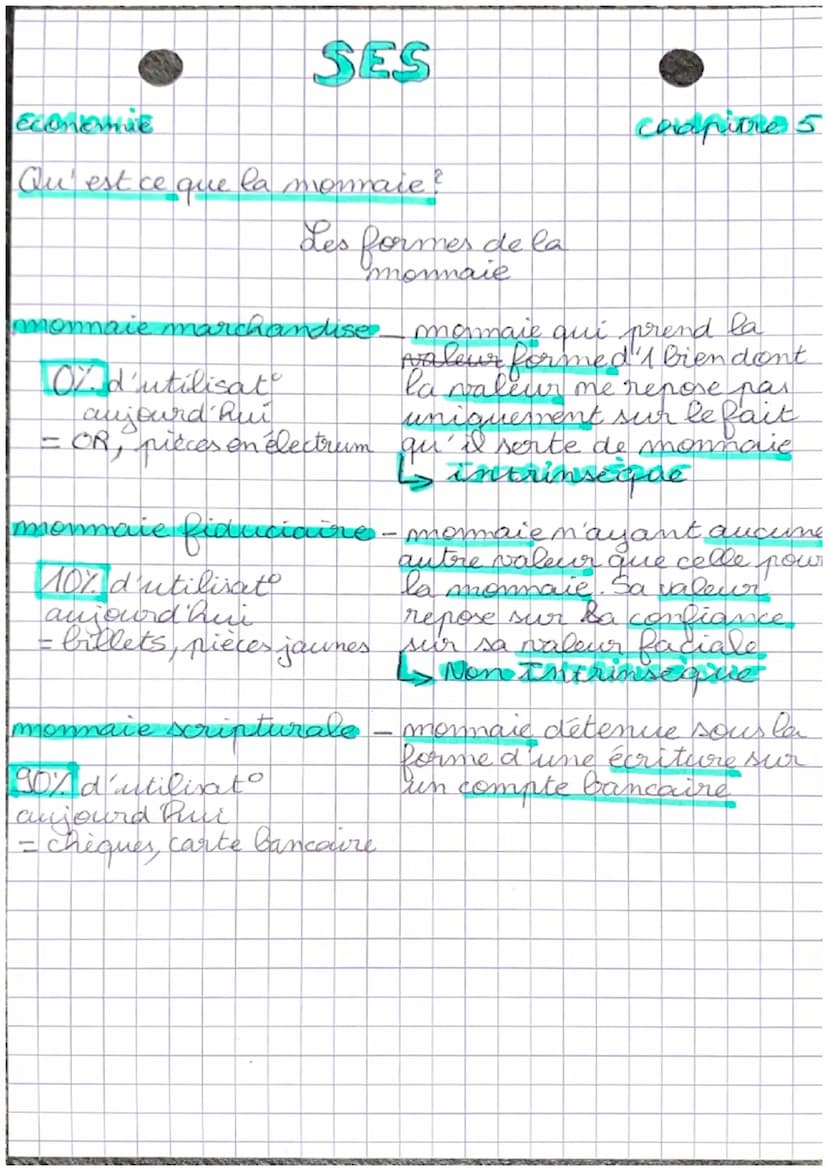 SES
économie
chapitre 5
Qu'est ce que la monnaie?
Les formes de la
monnaie
monnaie marchandise – monnaie qui prend la
valeur forme d'1 bien dont
0% d'utilisat° la valeur ne repose pas
aujourd'hui uniquement sur le fait
= OR, pièces en électrum qu'il serte de monnaie
↳ intrinsèque
monnaie fiduciaire – monnaie n'ayant aucune
autre valeur que celle pour
10% d'utilisat° la monnaie. Sa valeur
aujourd'hui repose sur la confiance
= billets, pièces jaunes sur sa valeur faciale
↳ Non Intrinsèque
monnaie scripturale – monnaie détenue sous la
forme d'une écriture sur
90% d'utilisat° un compte bancaire
aujourd'hui
= chèques, carte bancaire